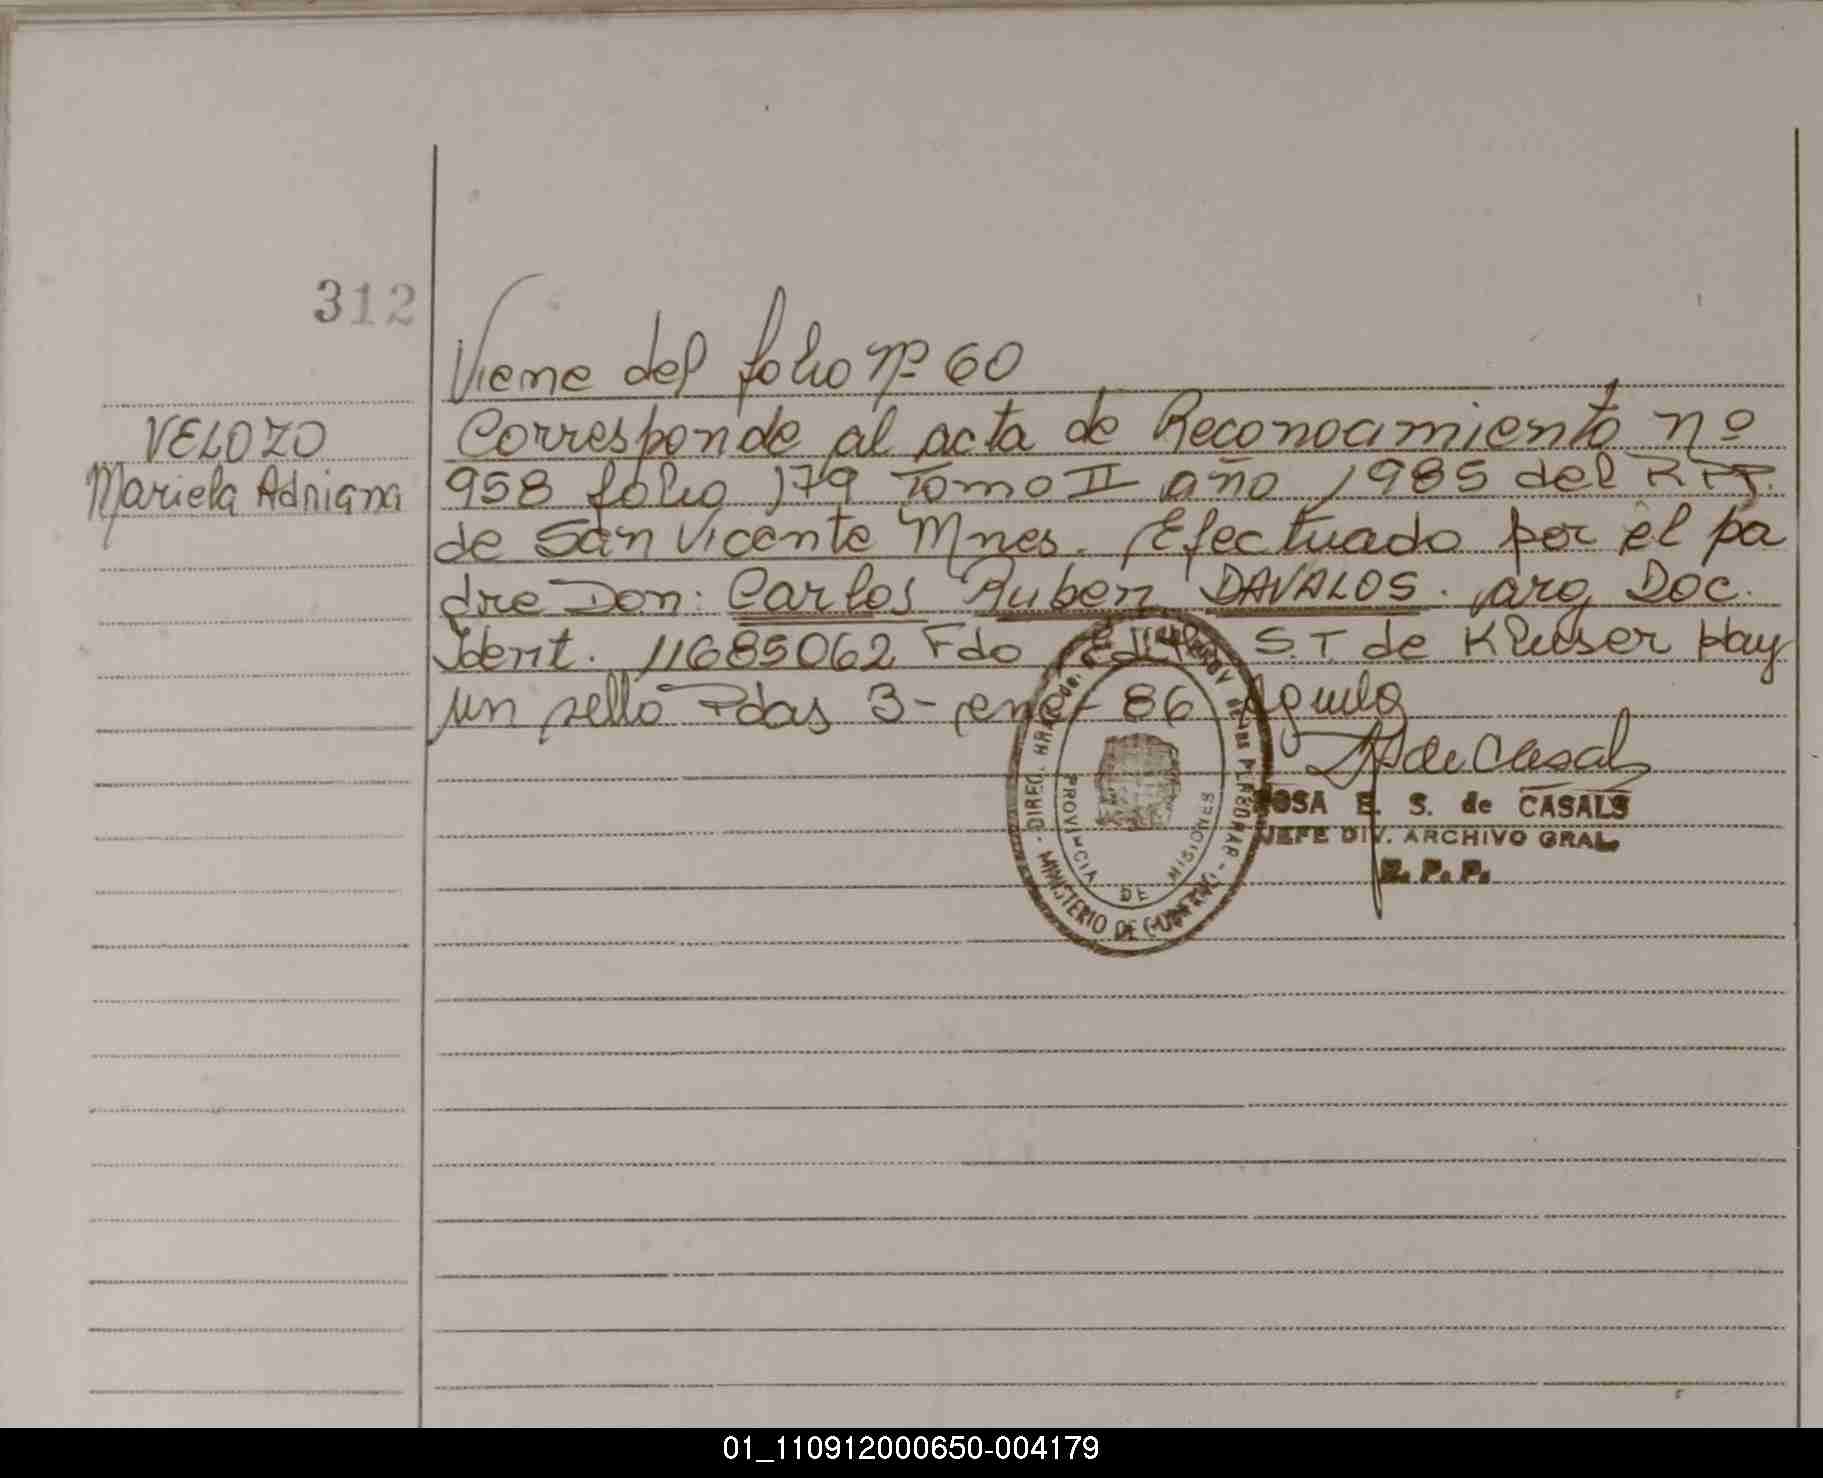 312
Viene del folio nº 60
VELOZO
Mariela Adriana
Corresponde al acta de Reconocimiento nº
958 folio 179 Tomo II año 1985 del R.P.
de San Vicente Mnes. Efectuado por el pa
dre Don: Carlos Ruben DAVALOS. arg Doc.
Ident. 11685062 Fdo S.T. de Kluser Hay
un sello Pdas 3-ene-86
S de Casals
ROSA E. S. de CASALS
JEFE DIV. ARCHIVO GRAL.
R. P. P.
MINISTERIO DE GOBIERNO
PROVINCIA DE MISIONES
01_110912000650-004179